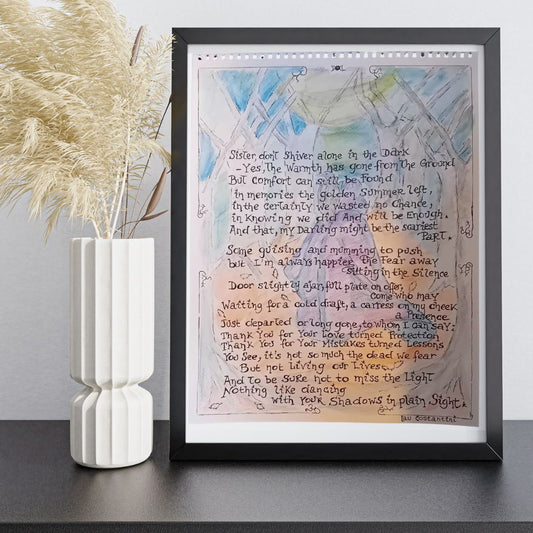 Sister, don't Shiver alone in the Dark
- Yes, The Warmth has gone from The Ground
But comfort can still be Found
in memories the golden Summer left,
in the certainty we wasted no Chance,
in Knowing we did And will be Enough.
And that, my Darling might be the scariest
Part.
Some guising and mumming to push
but I'm always happier, the Fear away
sitting in the Silence
Door slightly ajar, full plate on offer,
come who may
Waiting for a cold draft, a caress on my cheek
a Presence
Just departed or long gone, to whom I can say:
Thank You for Your Love turned Protection
Thank You for Your Mistakes turned Lessons
You See, it's not so much the dead we fear
But not Living our Lives.
And To be Sure not to miss the Light
Nothing like dancing
with Your Shadows in plain Sight.
Lau Costantini